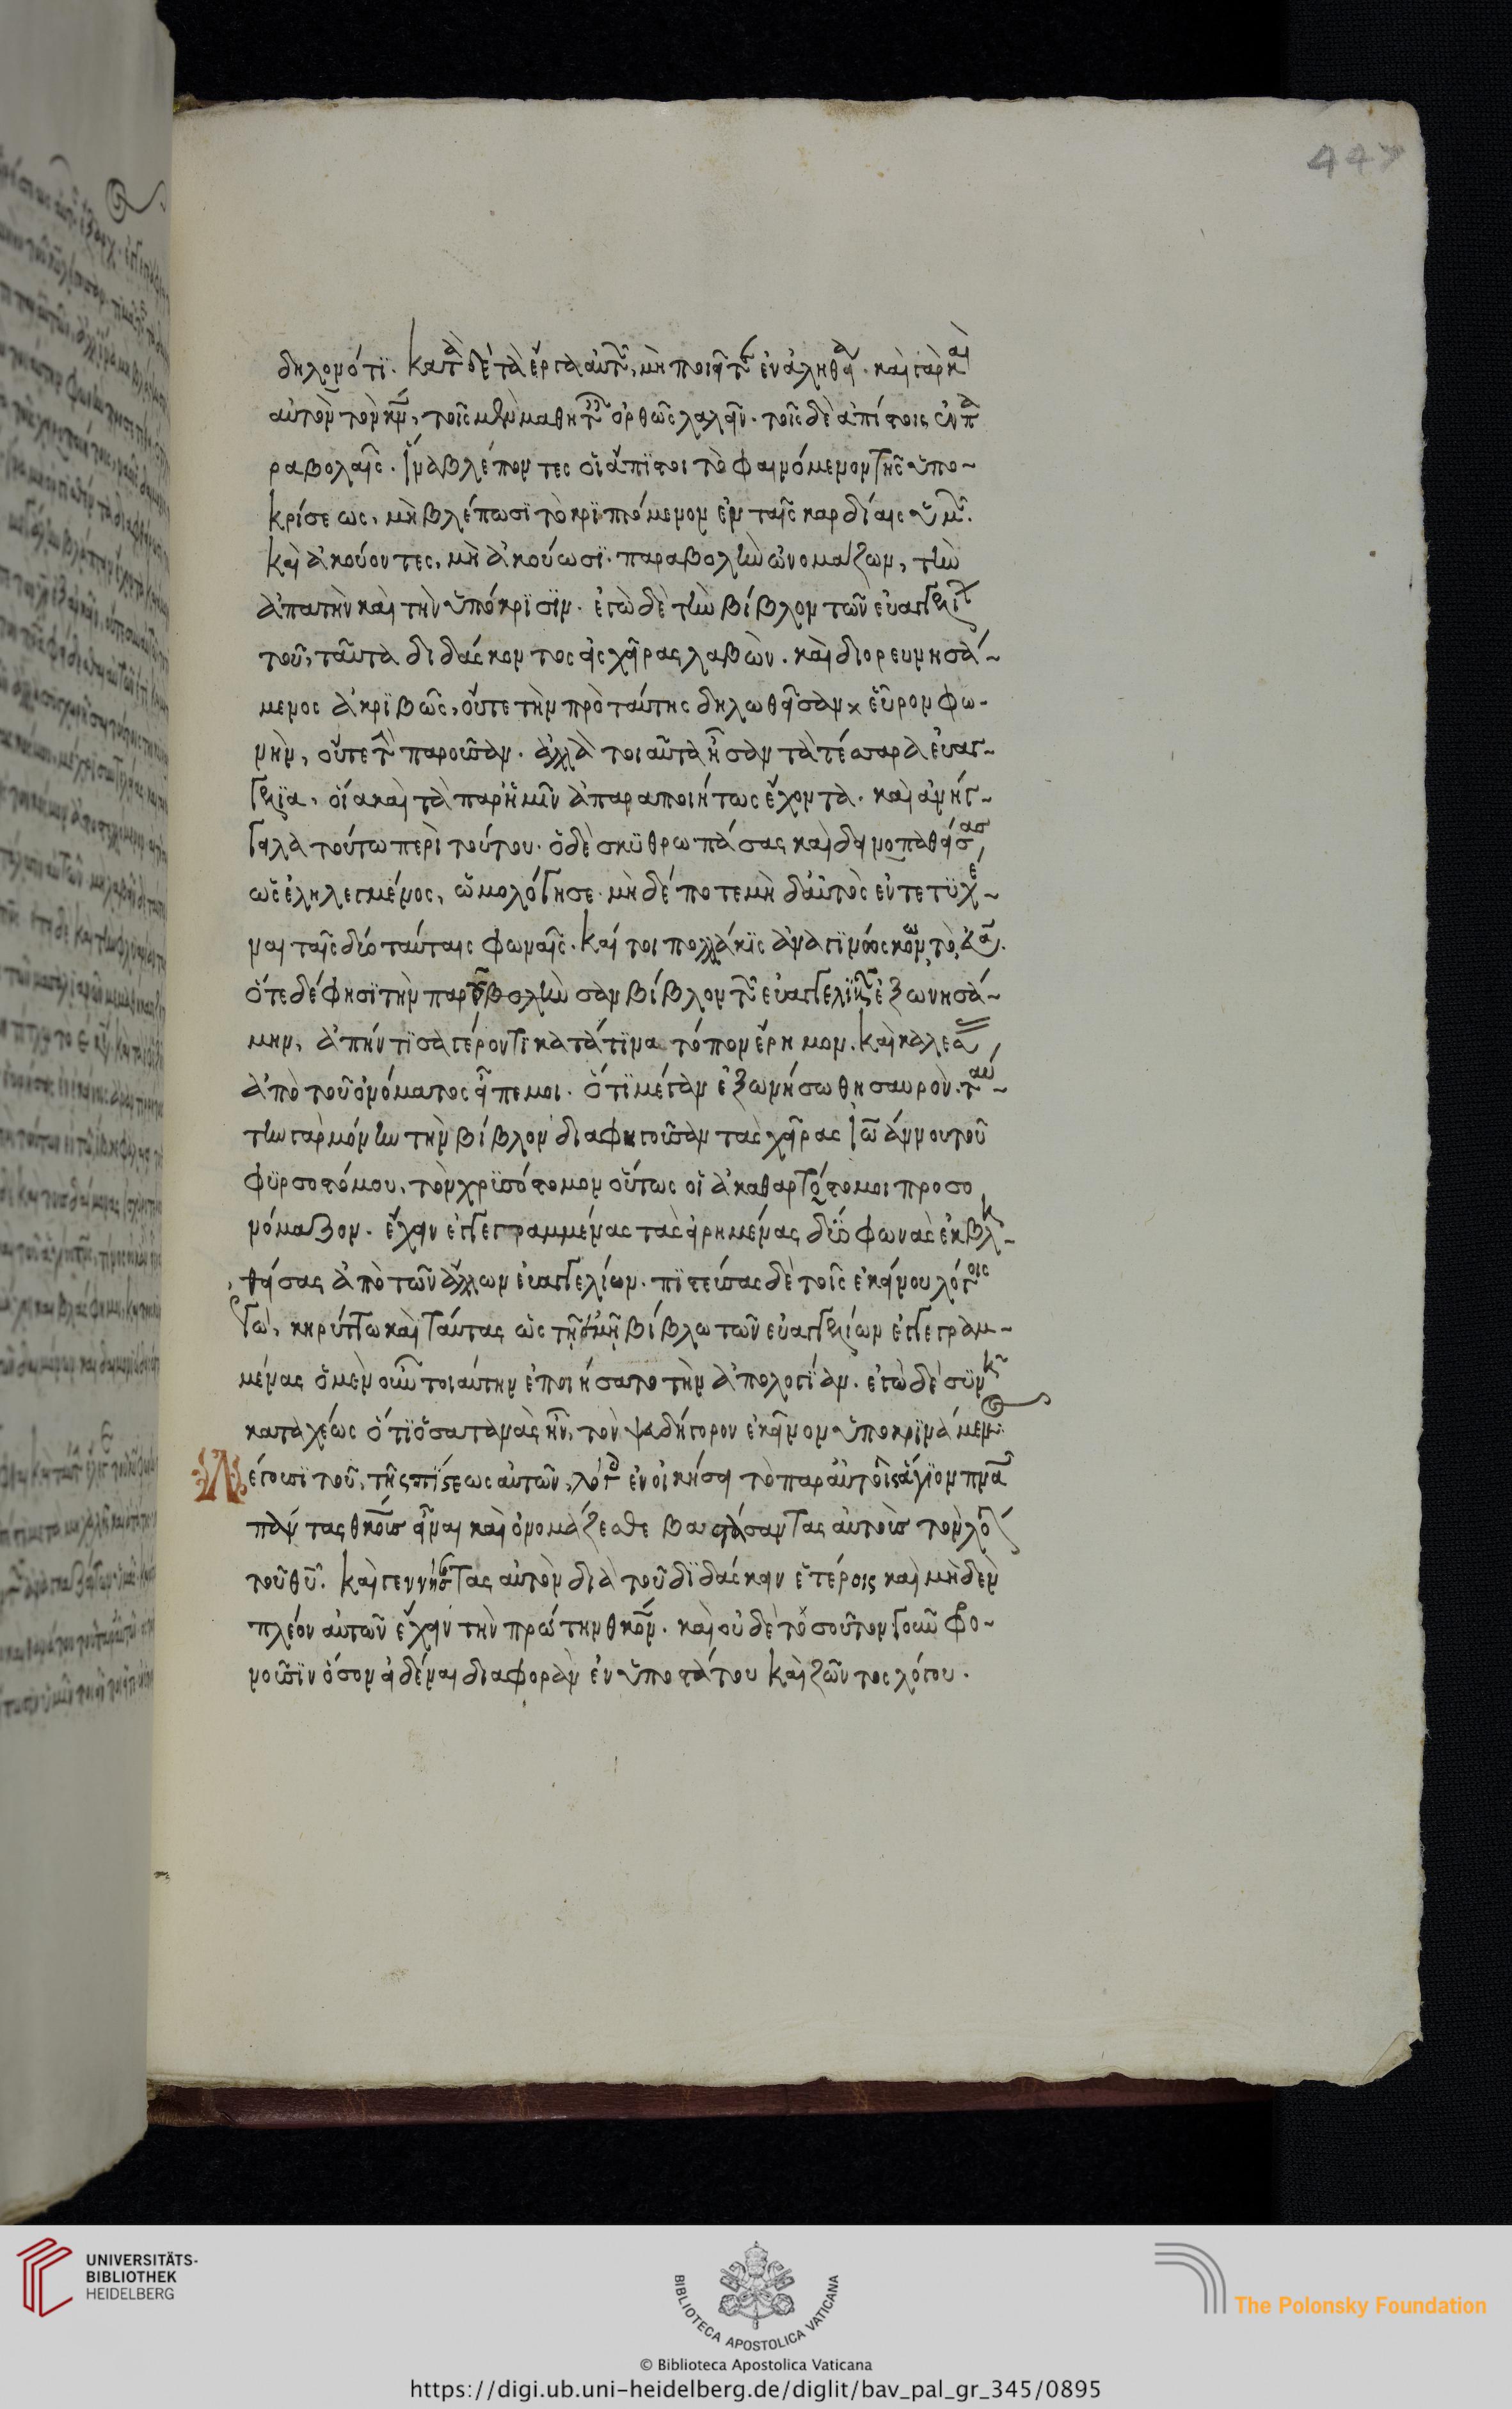 447
δηλονότι. Κατὰ δὲ τὰ ἔργα αὐτῶν, μὴ ποιεῖτε ἐν ἀληθεία. καὶ γὰρ καὶ
αὐτὸν τὸν κν, τοῖς μὲν μαθηταῖς ὀρθῶς λαλεῖν. τοῖς δὲ ἀπίστοις ἐν πα
ραβολαῖς. ἵνα βλέποντες οἱ ἄπιστοι τὸ φαινόμενον τῆς ὑπο-
κρίσεως, μὴ βλέπωσϊ τὸ κρϊπτόμενον ἐν ταῖς καρδίαις ὑμῶν.
Καὶ ἀκούοντες, μὴ ἀκούωσϊ. παραβολὴν ὠνομαζων, τὴν
ἀπατὴν καὶ τὴν ὑπόκρϊσϊν. ἐγὼ δὲ τὴν βίβλον τῶν εὐαγγελίων
τοῦ, ταῦτα διδάσκοντος εἰς χεῖρας λαβὼν. καὶ διορευνησά-
μενος ἀκρϊβῶς, οὔτε τὴν πρὸ ταύτης δηλωθεῖσαν εὗρον φω-
νὴν, οὔτε τὴν παροῦσαν. ἀλλὰ τοιαῦτα ἦσαν τὰ τέσσαρα εὐαγ-
γελϊα, οἷα καὶ τὰ παρ' ἡμῖν ἀπαραποιήτως ἔχοντα. καὶ ἀνήγ-
γειλα τούτω περὶ τούτου. ὁ δὲ σκϋθρωπάσας καὶ δεινοπαθήσας
ὡς ἐληλεγμένος, ὡμολόγησε. μὴ δέποτε μὴ δ' αὐτὸς ἐντετϋχέ-
ναι ταῖς δύο ταύταις φωναῖς. Καί τοι πολλάκϊς
ὅτε δέ φησϊ τὴν παρεμβολὴν σὰν βίβλον τῶν εὐαγγελϊων ἐξωνησά-
μην, ἀπήντϊσα γέροντϊ κατά τϊνα τόπον ἔρημον. Καὶ καλέσας
ἀπὸ τοῦ ὀνόματος εἶπε μοι. ὅτϊ μέγαν ἐξωνήσω θησαυρὸν. ταύ-
την γὰρ μόνην τὴν βίβλον διαφυγοῦσαν τὰς χεῖρας ἰωάννου τοῦ
φϋρσοστόμου, τὸν χρϊσόστομον οὕτως οἱ ἀκαθαρτόστομοι προσο
νόμαζον. ἔχειν ἐγγεγραμμένας τὰς εἰρημένας δύο φωνὰς ἐκβλη-
θήσας ἀπὸ τῶν ἄλλων εὐαγγελίων. πϊστεύσας δὲ τοῖς ἐκείνου λόγοις
ἐγὼ, κηρύττω καὶ ταύτας ὡς τῇ ἐμῇ βίβλω τῶν εὐαγγελίων ἐγγεγραμ-
μένας ὁ μὲν οὖν τοιαύτην ἐποιήσατο τὴν ἀπολογίαν. ἐγὼ δὲ σϋν
κατὰ χέως ὅτϊ ὁ σατανᾶς ἦν, τὸν ψευδήγορον ἐκεῖνον ὑποκρϊνάμεν
Λέγουσϊ τοῦ, τῆς πϊστεως αὐτῶν, λόγου ἐνοικήσει τὸ παρ' αὐτοῖς ἅγϊον πνα
πάντας θκους εἶναι καὶ ὀνομάζεσθε βαστάσαντας αὐτοὺς τὸν λόγον
τοῦ θυ. Καὶ γεννήσαντας αὐτὸν διὰ τοῦ διδάσκειν ἑτέροις καὶ μηδὲν
πλέον αὐτῶν ἔχειν τὴν πρώτην θκον. καὶ οὐδὲ τοσοῦτον γοῦν φρο-
νοῦσϊν ὅσον εἰδέναι διαφορὰν ἐνϋποστάτου καὶ ζῶντος λόγου.
UNIVERSITÄTS-
BIBLIOTHEK
HEIDELBERG
BIBLIOTECA APOSTOLICA VATICANA
The Polonsky Foundation
© Biblioteca Apostolica Vaticana
https://digi.ub.uni-heidelberg.de/diglit/bav_pal_gr_345/0895